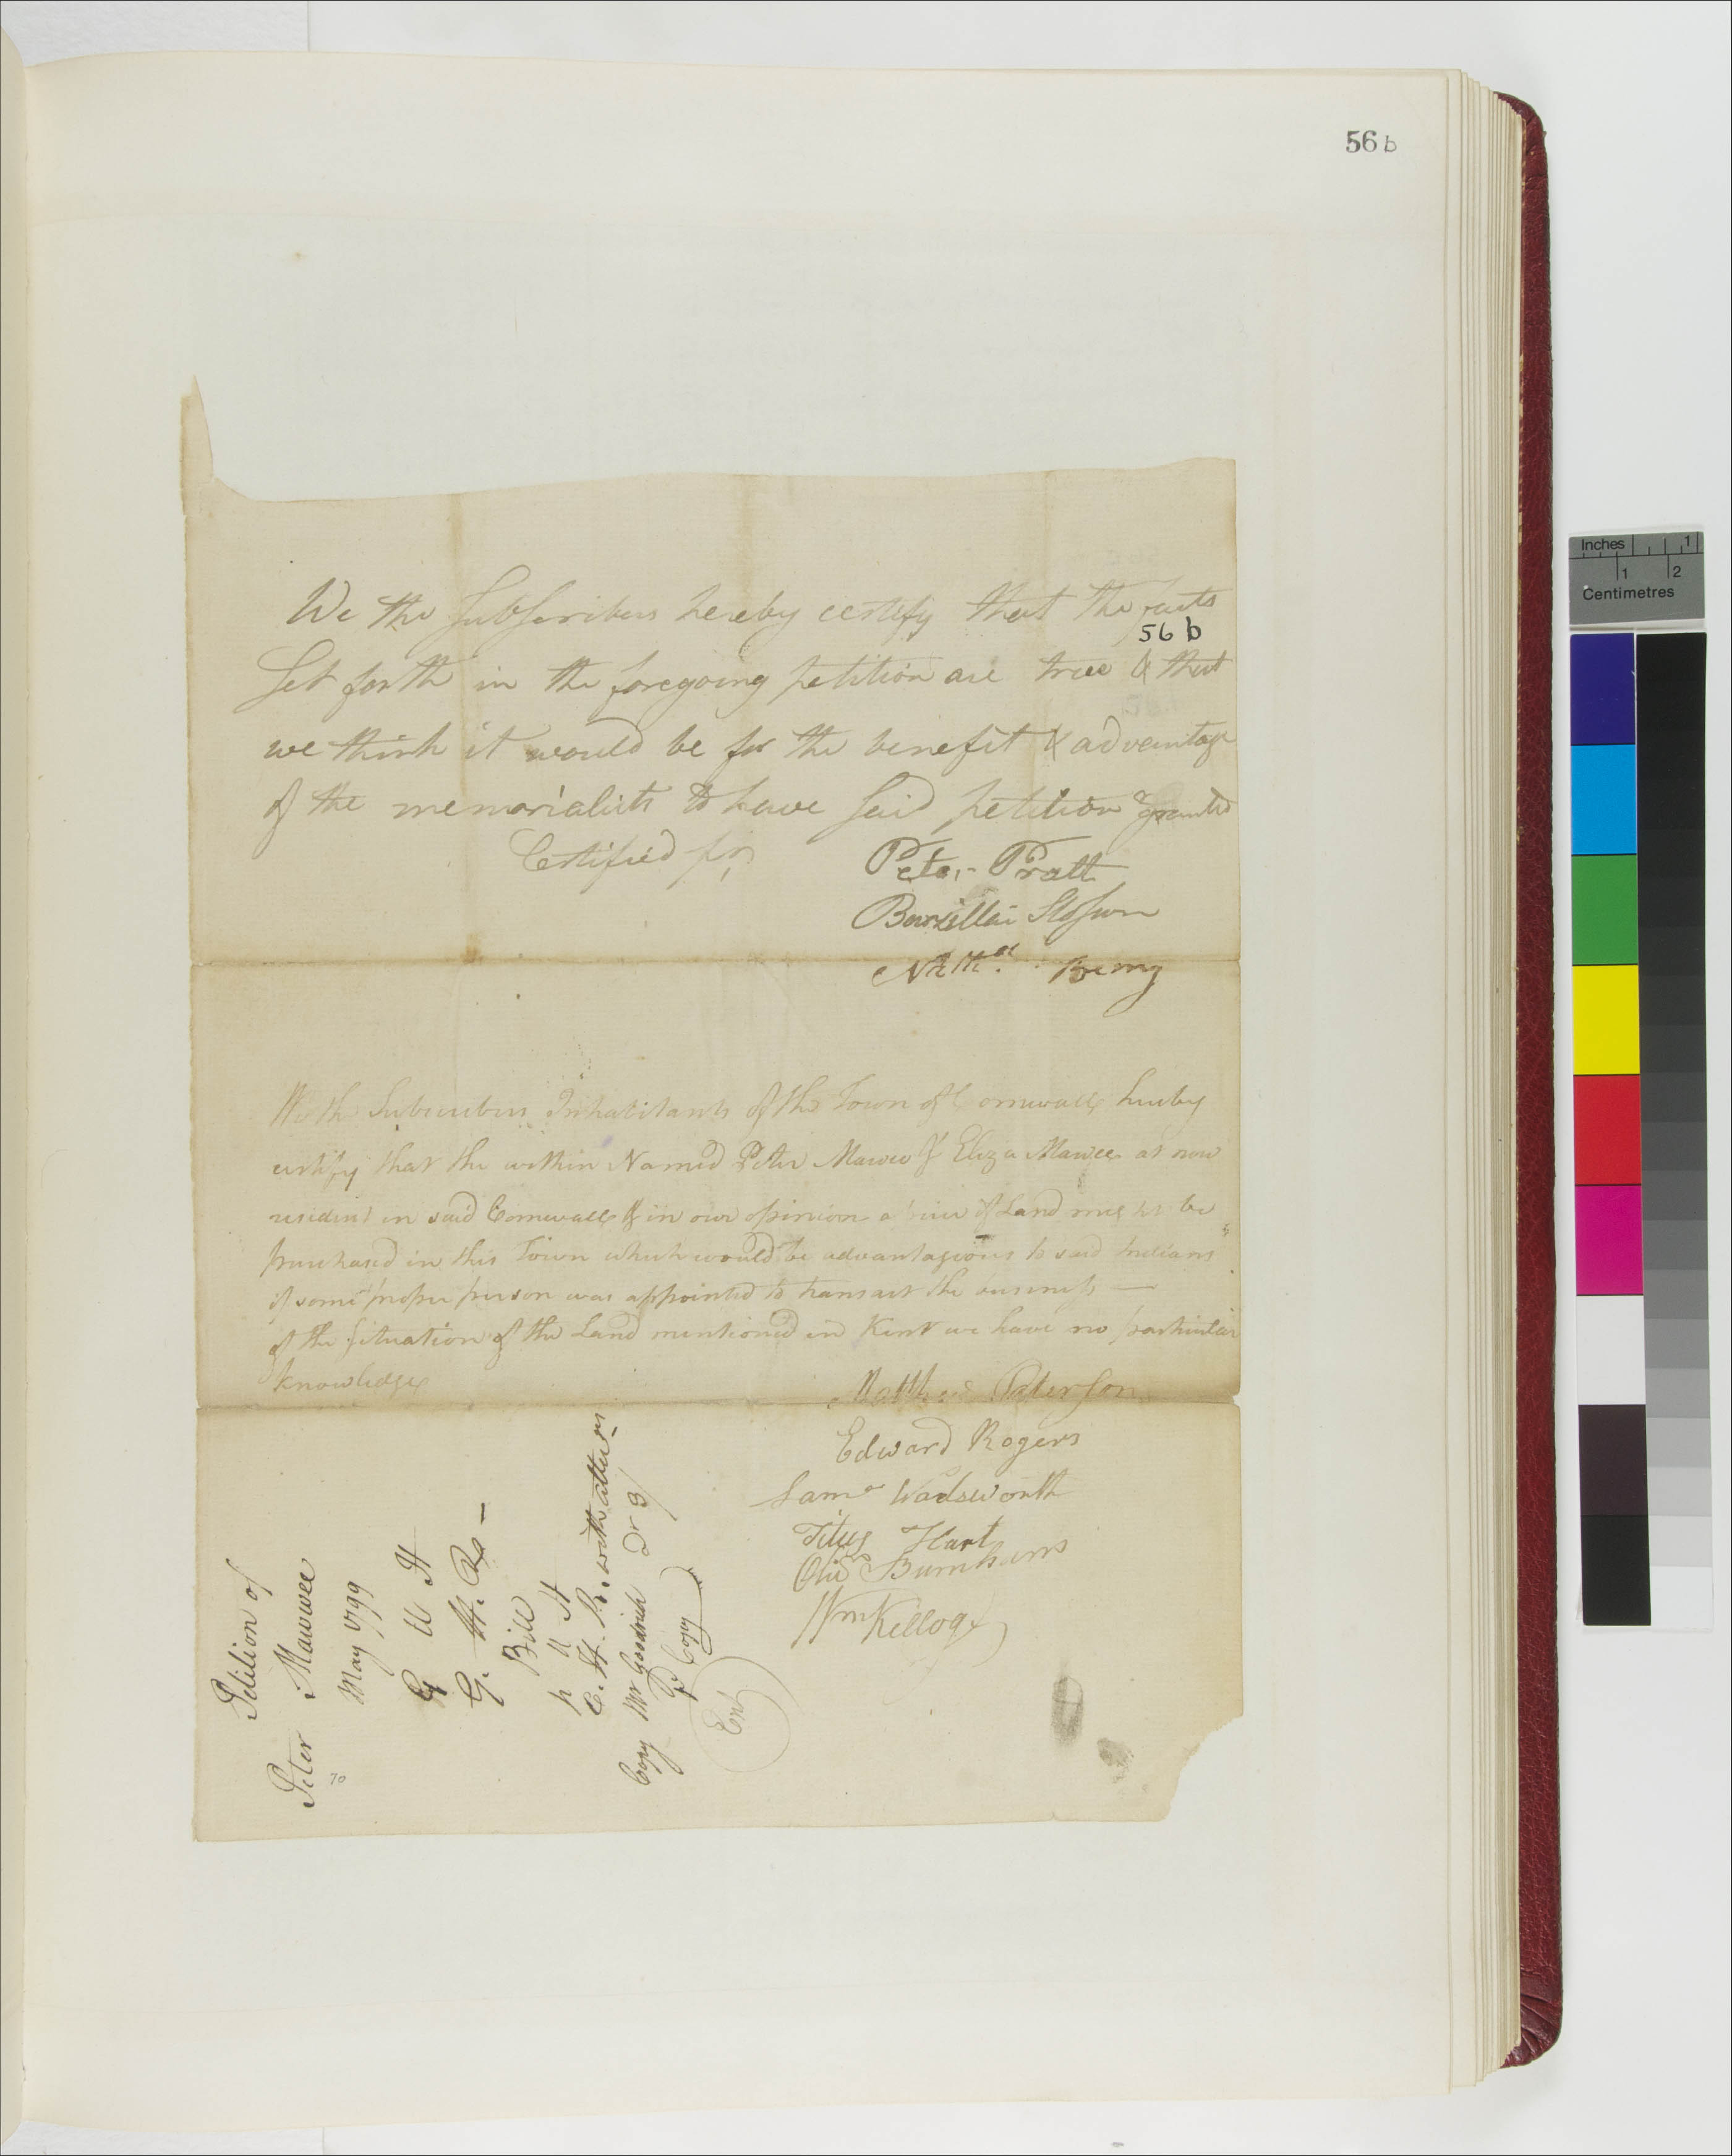 56 b
We the Subscribers hereby certify that the facts
56 b
Set forth in the foregoing petition are true & that
we think it would be for the benefit & advantage
of the memorialists to have said petition granted
Certified by
Peter Pratt
Barzillai Slosson
Nathl. Berry
We the Subscribers Inhabitants of the Town of Cornwall hereby
certify that the within Named Peter Mawee & Eliza Mawee as now
resident in said Cornwall & in our opinion a of Land might be
purchased in this Town which would be advantagious to said Indians
if some proper person was appointed to transact the business —
of the situation of the Land mentioned in Kent we have no particular
knowledge
Matthew Paterson
Edward Rogers
Saml Wadsworth
Titus Hart
Olivr Burnham
Wm Kellogg
Petition of
Peter Mawwee
70
May 1799
G U H
G. H. Ro —
Bill
p U H
C. H. R. with alterns
Copy Mr Goodrich Dr 3/
Pd Copy
Entd
Inches 1
1 2
Centimetres